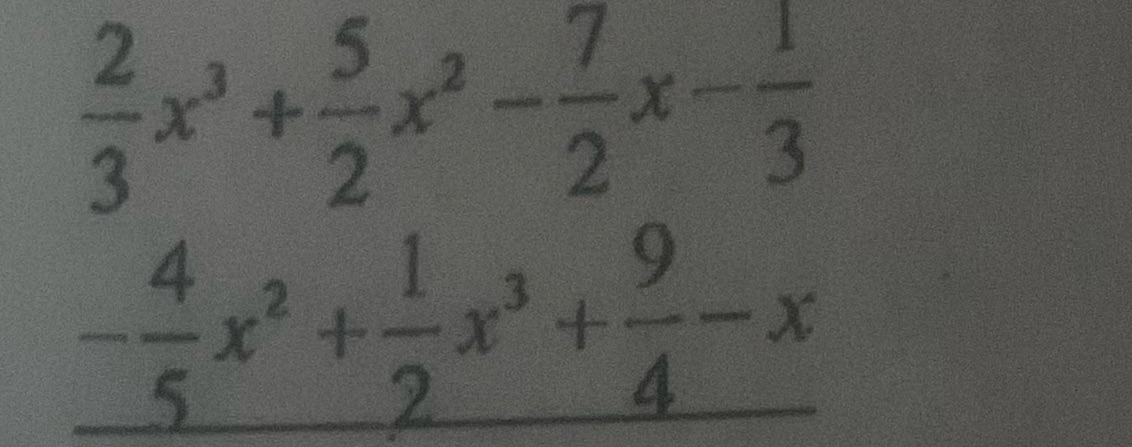 2/3 x³ + 5/2 x² - 7/2 x - 1/3
- 4/5 x² + 1/2 x³ + 9/4 - x